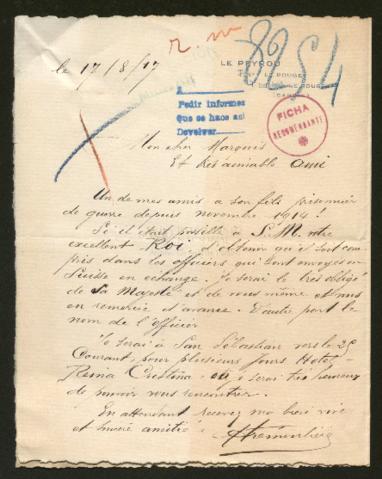 LE PEYROU
8254
le 17/8/17
Pedir informes
Que se hace así
Devolver
FICHA
RECOMENDANTE
Mon cher Marquis
Et très aimable Ami
Un de mes amis a son fils prisonnier
de guerre depuis novembre 1914!
Si il était possible à S. M. votre
excellent Roi, d'obtenir qu'il soit com
pris dans les officiers qui sont envoyés en
Suisse en échange. Je serai le très obligé
de Sa Majesté et de vous même et vous
en remercie et avance. D'autre part le
nom de l'officier
Je serai à San Sébastian vers le 25
Courant, pour plusieurs jours Hotel
Reina Cristina où je serai très heureux
de pouvoir vous rencontrer.
En attendant recevez ma bien vive
et sincère amitié